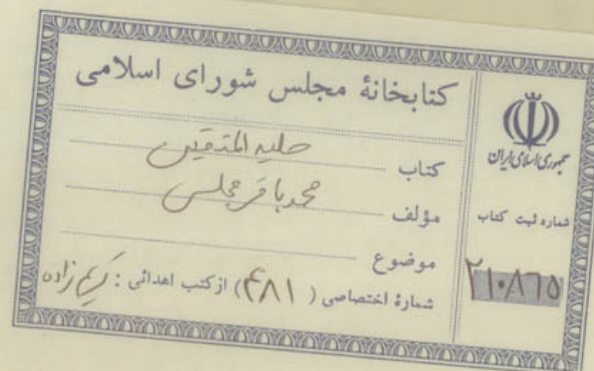 کتابخانهٔ مجلس شورای اسلامی
کتاب حلیه المتقین
مؤلف محمد باقر مجلسی
موضوع
شمارهٔ اختصاصی ( ۴۸۱ ) از کتب اهدائی : کریم زاده
جمهوری اسلامی ایران
شماره ثبت کتاب
۲۱۰۸۶۵